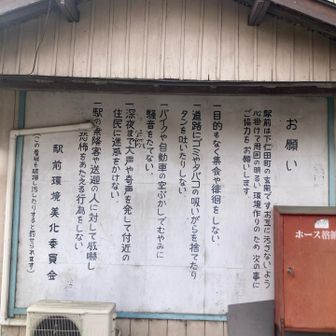 お願い
駅前は下仁田町の玄関ですお互に汚さないよう
心掛けて周囲の明るい環境作りのため 次の事に
ご協力をお願いします
一目的もなく集会や徘徊をしない
一道路にゴミやタバコの吸いがらを捨てたり
タンを吐いたりしない
一バイクや自動車の空ぶかしでむやみに
騒音をたてない
一深夜まで大声や奇声を発して付近の
住民に迷惑をかけない
一駅の乗降客や送迎の人に対して威嚇し
恐怖をあたえる行為をしない
駅前環境美化委員会
(この看板を破損し汚したりすると罰せられます)
ホース格納